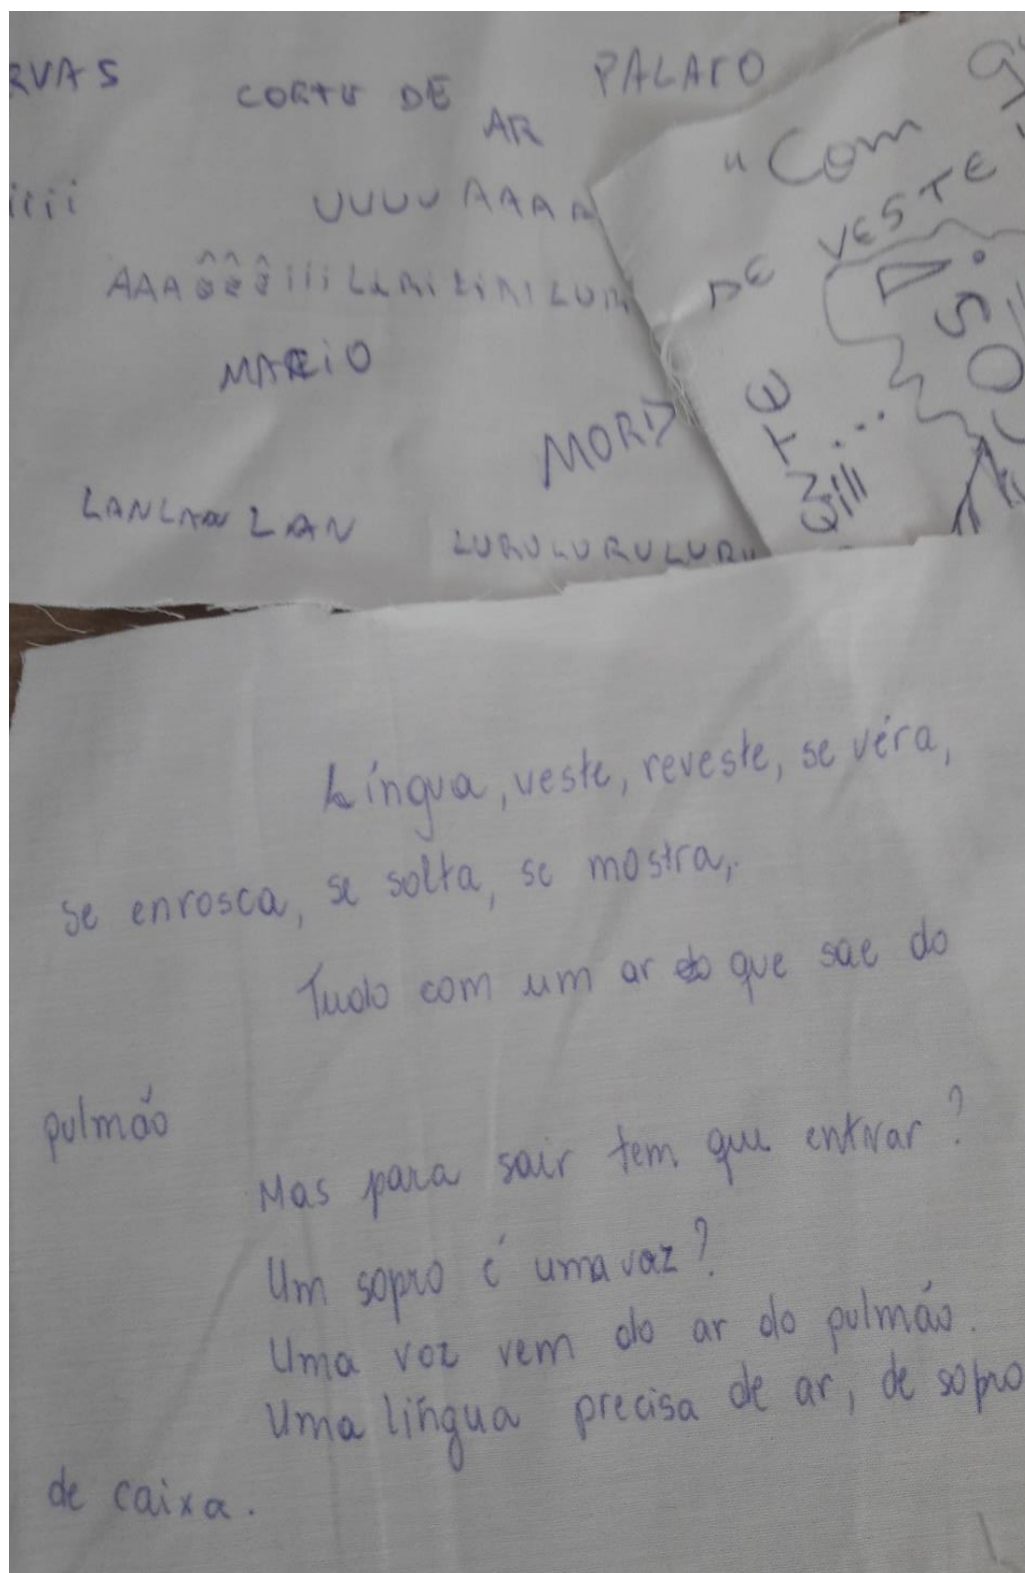 RVAS CORTE DE PALATO
AR
iiii UUUU AAAA
AAAêêêiiiLARiLiRILURi
MACIO
MORD
LANLANLAN LURULURULURU
"Com
DE VESTE
Língua, veste, reveste, se véra,
se enrosca, se solta, se mostra,
Tudo com um ar que sae do
pulmão
Mas para sair tem que entrar?
Um sopro é uma voz?
Uma voz vem do ar do pulmão.
Uma língua precisa de ar, de sopro
de caixa.